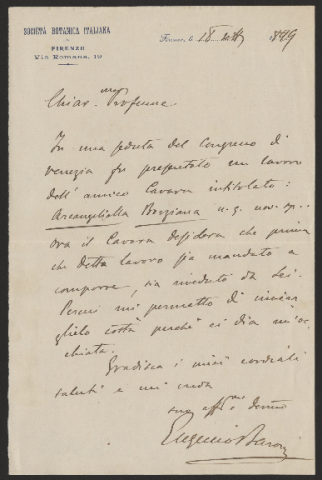 SOCIETÀ BOTANICA ITALIANA
FIRENZE
Via Romana, 19
Firenze, il 18 1899
Chiar.mo Professore
In una seduta del Congresso di
Venezia fu presentato un lavoro
dell'amico Cavara intitolato:
Arcangeliella Borziana n. g. nov. sp.
Ora il Cavara desidera che prima
che detto lavoro sia mandato a
comporre, sia riveduto da Lei.
Perciò mi permetto di inviar
glielo costà perchè ci dia un'oc
chiata.
Gradisca i miei cordiali
saluti e mi creda
suo aff.mo
Eugenio Baroni